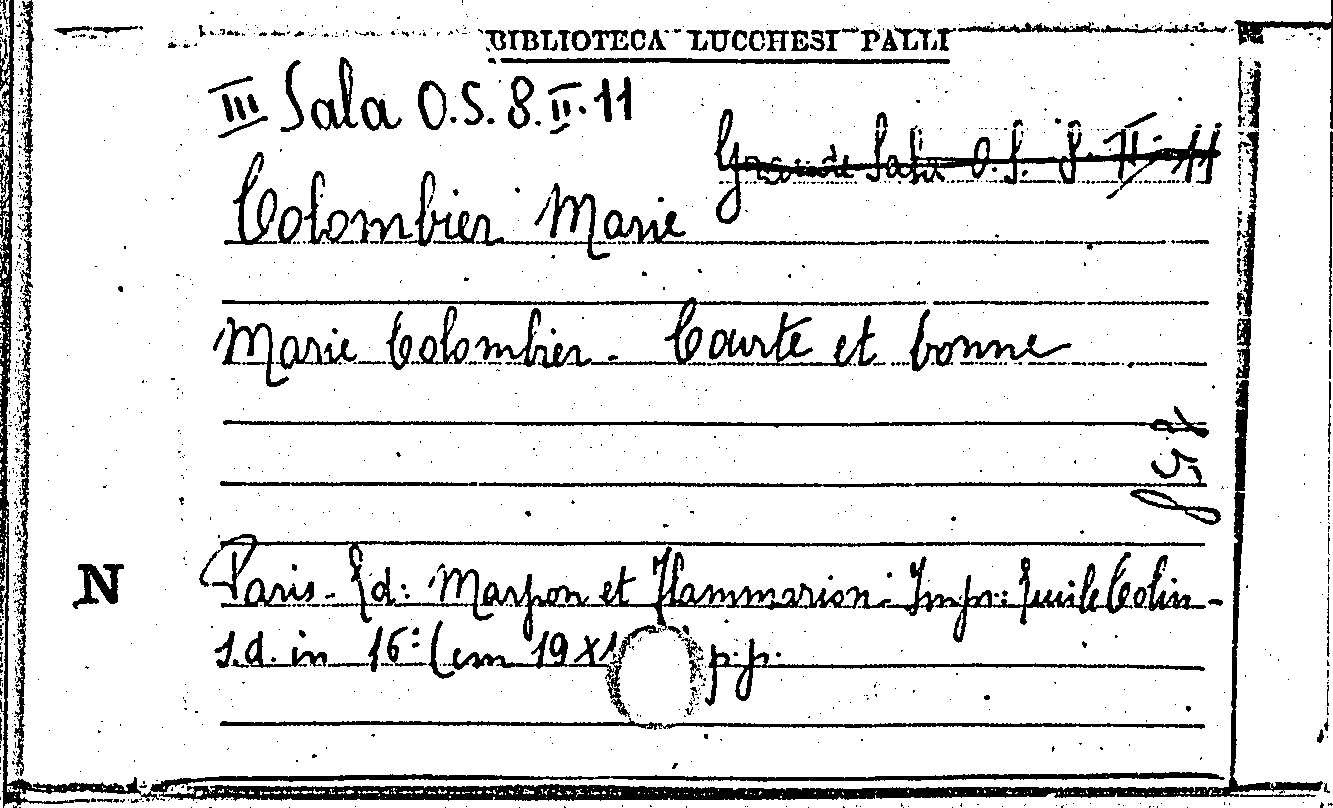 BIBLIOTECA LUCCHESI PALLI
III Sala O.S. 8. II. 11
Grande Sala O.S. 8. II. 11
Colombier Marie
Marie Colombier - Courte et bonne
858
N
Paris - Ed: Marpon et Flammarion - Imp: Emile Colin -
s.d. in 16: (cm 19 x 1 p.p.